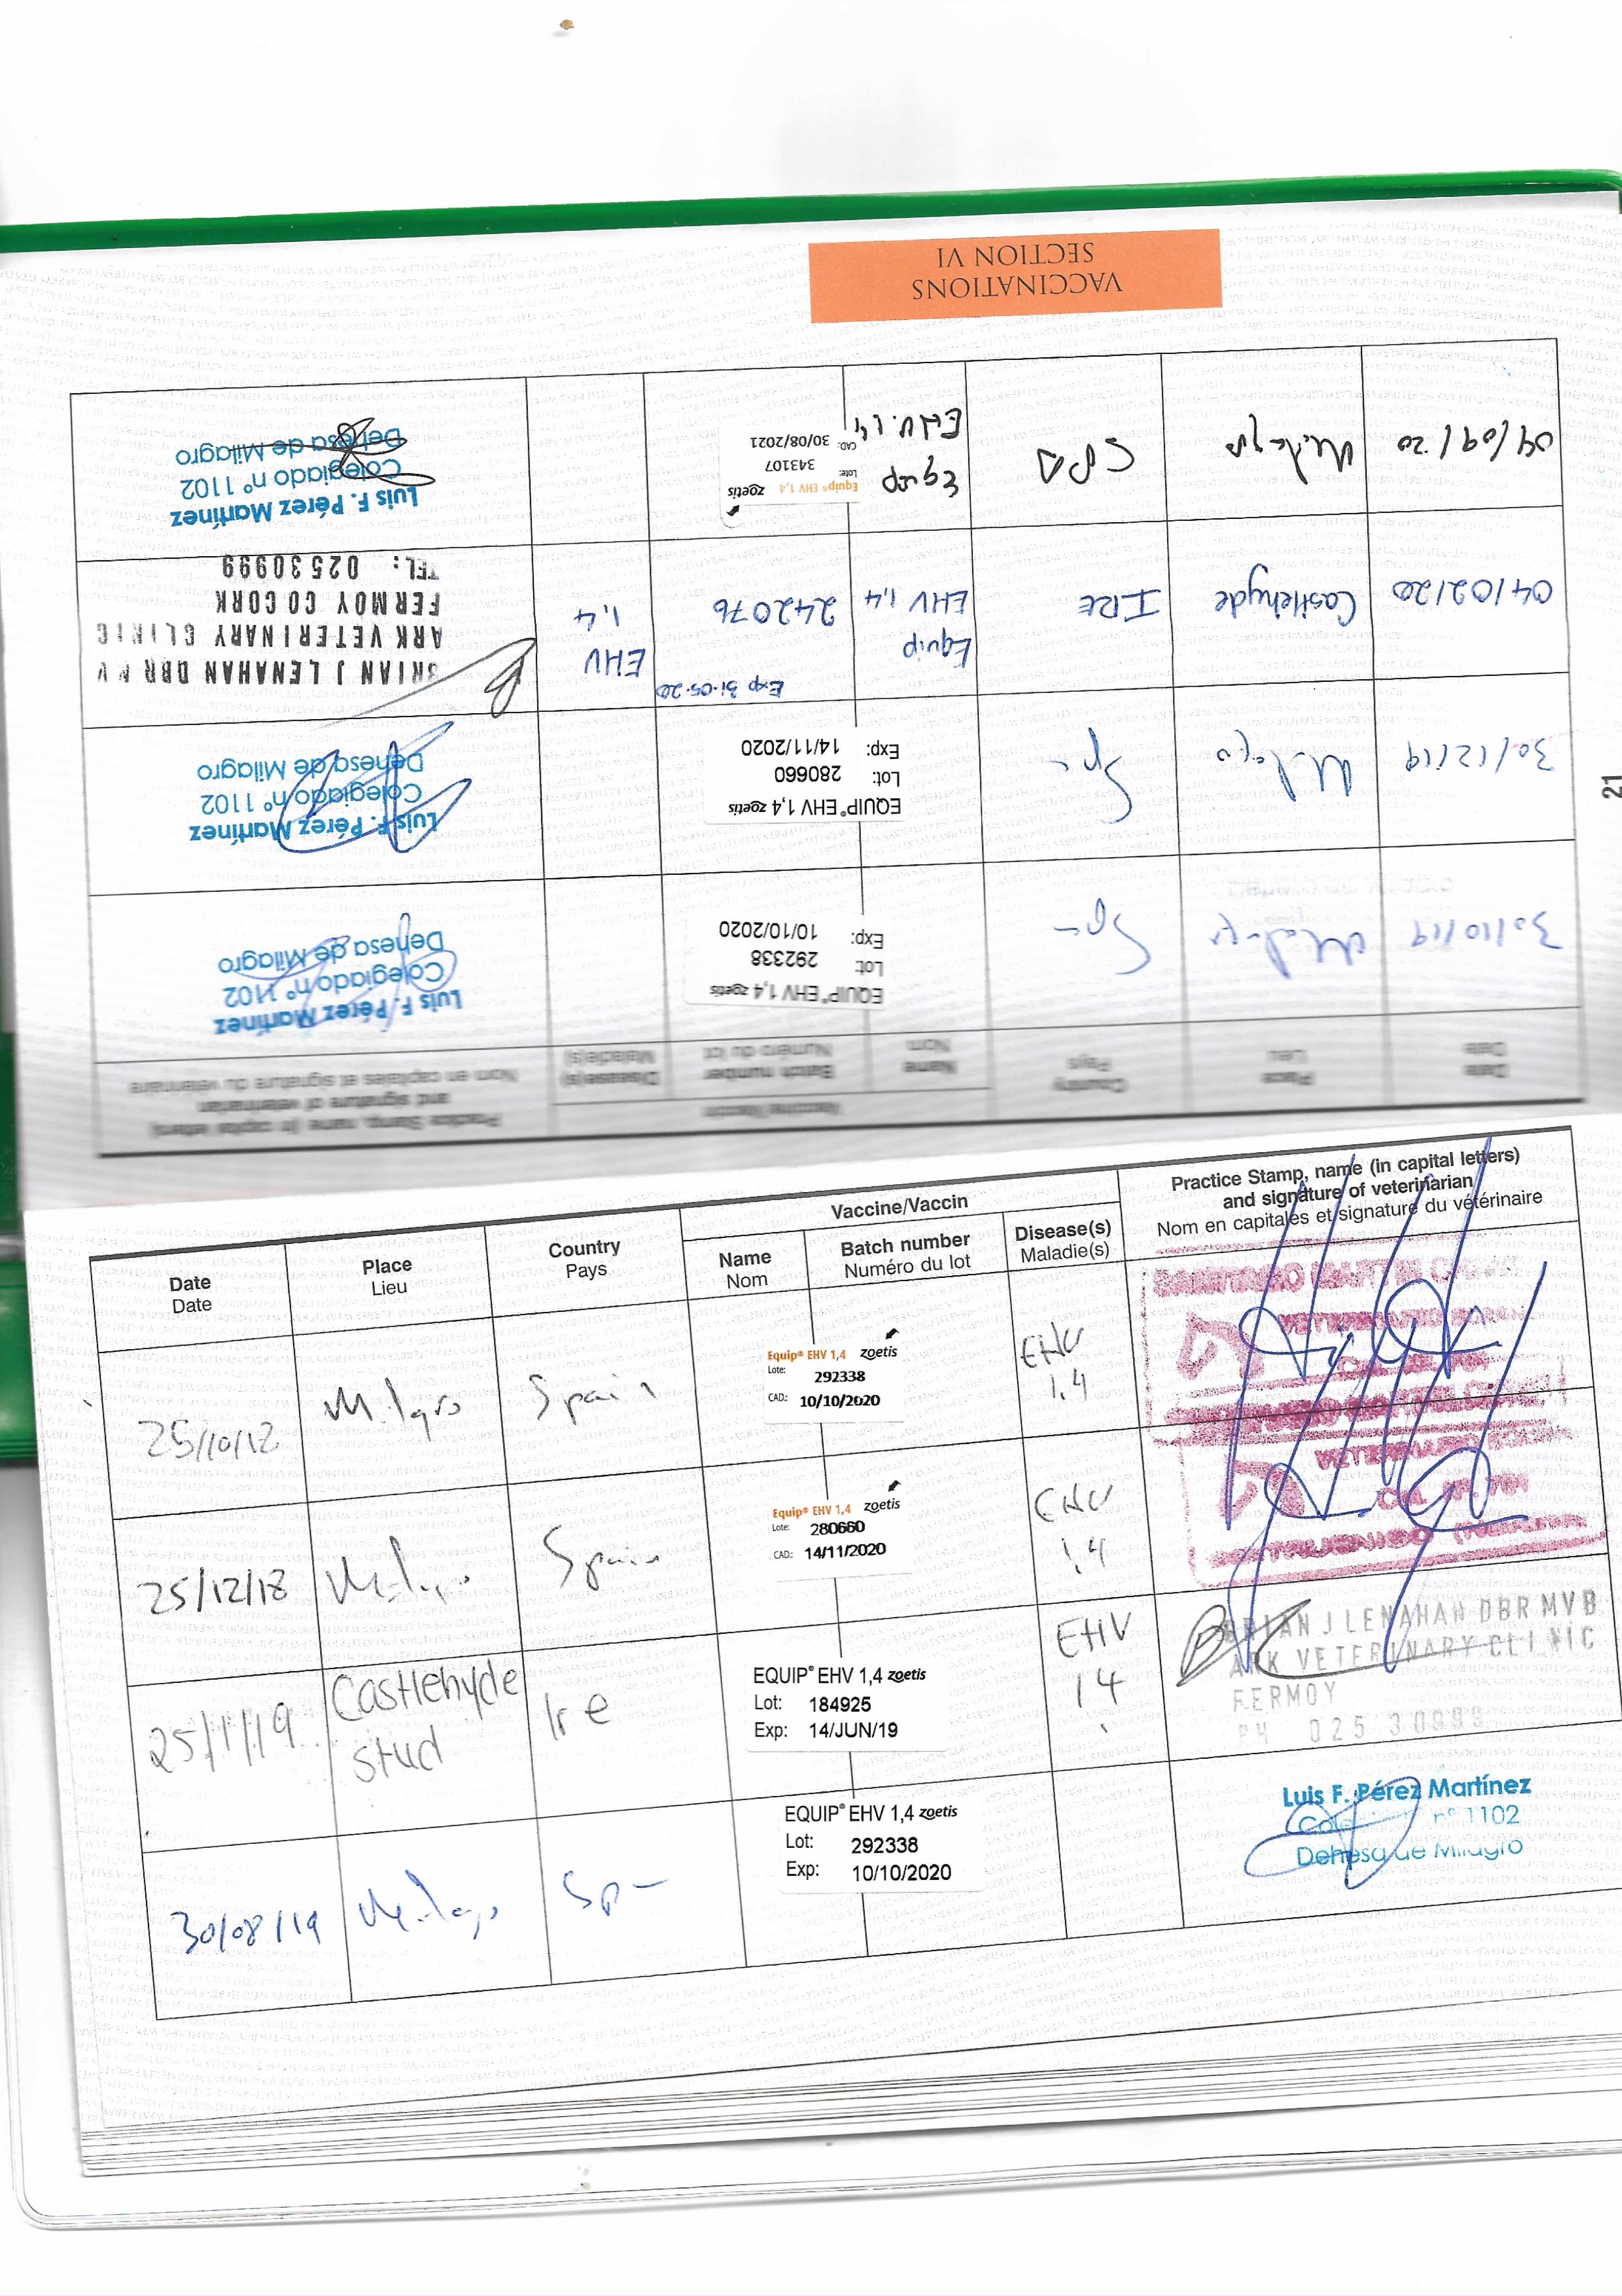 VACCINATIONS
SECTION VI
21
Date
Date
Place
Lieu
Country
Pays
Vaccine/Vaccin
Name
Nom
Batch number
Numéro du lot
Disease(s)
Maladie(s)
Practice Stamp, name (in capital letters)
and signature of veterinarian
Nom en capitales et signature du vétérinaire
30/10/19
EQUIP® EHV 1,4 zoetis
Lot: 292338
Exp: 10/10/2020
Luis F. Pérez Martínez
Colegiado nº 1102
Dehesa de Milagro
30/12/19
EQUIP® EHV 1,4 zoetis
Lot: 280660
Exp: 14/11/2020
Luis F. Pérez Martínez
Colegiado nº 1102
Dehesa de Milagro
04/02/20
Castlehyde
IRE
Equip
EHV 1,4
Exp 31-05-20
242076
EHV
1,4
BRIAN J LENAHAN DBR MV
ARK VETERINARY CLINIC
FERMOY CO CORK
TEL: 02530999
04/09/20
Milagro
Equip
EHV.1,4
Equip® EHV 1,4 zoetis
Lote: 343107
CAD: 30/08/2021
Luis F. Pérez Martínez
Colegiado nº 1102
Dehesa de Milagro
Date
Date
Place
Lieu
Country
Pays
Vaccine/Vaccin
Name
Nom
Batch number
Numéro du lot
Disease(s)
Maladie(s)
Practice Stamp, name (in capital letters)
and signature of veterinarian
Nom en capitales et signature du vétérinaire
Milagro
Spain
Equip® EHV 1,4 zoetis
Lote: 292338
CAD: 10/10/2020
EHV
1.4
25/12/18
Milagro
Spain
Equip® EHV 1,4 zoetis
Lote: 280660
CAD: 14/11/2020
EHV
1.4
25/1/19
Castlehyde
stud
Ire
EQUIP® EHV 1,4 zoetis
Lot: 184925
Exp: 14/JUN/19
EHV
1 4
BRIAN J LENAHAN DBR MVB
ARK VETERINARY CLINIC
FERMOY
PH 025 30999
30/08/19
Milagro
EQUIP® EHV 1,4 zoetis
Lot: 292338
Exp: 10/10/2020
Luis F. Pérez Martínez
nº 1102
Dehesa de Milagro